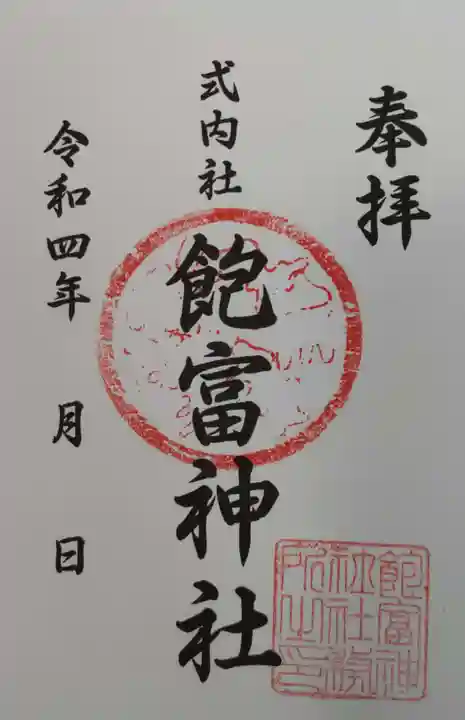 奉拝
式内社
飽富神社
令和四年　月　日
飽富神
社社務
所之印